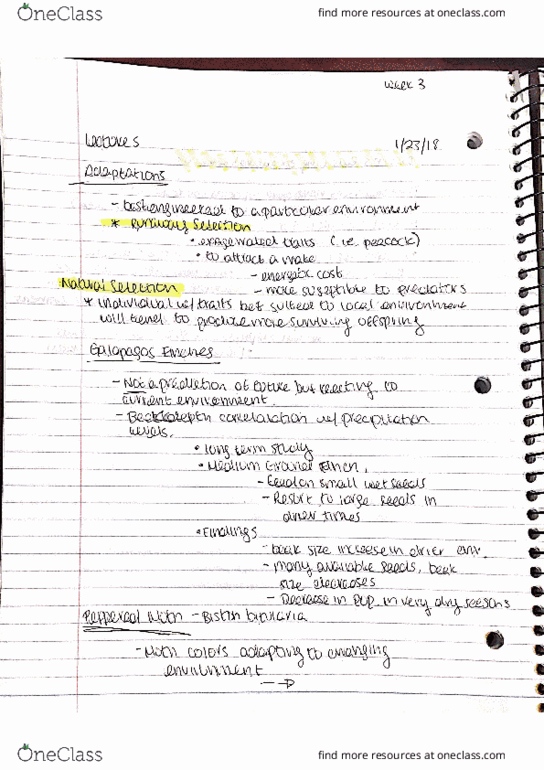 OneClass
find more resources at oneclass.com
Week 3
Lecture 5
1/23/18
Adaptations
- best engineered to a particular environment
* Runaway Selection
• exaggerated traits (i.e. peacock)
• to attract a mate
- energetic cost
- more susptible to predators
Natural Selection
* individual w/ traits best suited to local environment
will tend to produce more surviving offspring
Galapagos Finches
- Not a prediction of future but reacting to
current environment
- Beak depth correlation w/ precipitation
levels.
• long term study
• Medium Ground Finch,
- Feed on small wet seeds
- Resort to large seeds in
drier times
• Findings
- beak size increase in drier env.
- many available seeds, beak
size decreases
- Decrease in pop in very dry seasons
Peppered Moth - Biston
- Moth colors adapting to changing
environment
OneClass
find more resources at oneclass.com